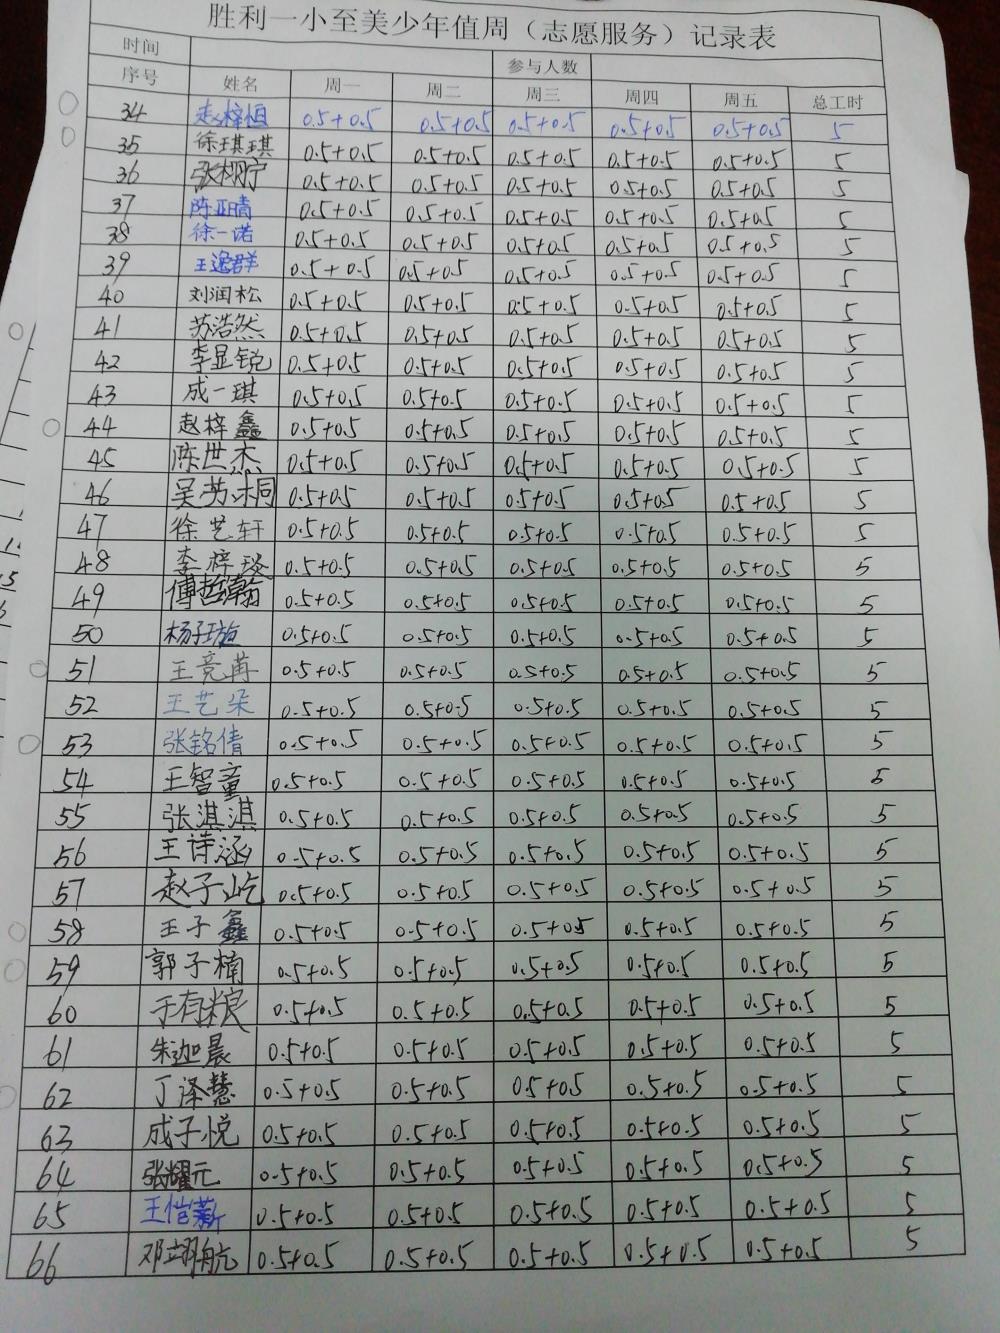 胜利一小至美少年值周（志愿服务）记录表
时间 参与人数
序号 姓名 周一 周二 周三 周四 周五 总工时
34 赵梓恒 0.5+0.5 0.5+0.5 0.5+0.5 0.5+0.5 0.5+0.5 5
35 徐琪琪 0.5+0.5 0.5+0.5 0.5+0.5 0.5+0.5 0.5+0.5 5
36 张栩宁 0.5+0.5 0.5+0.5 0.5+0.5 0.5+0.5 0.5+0.5 5
37 陈正晴 0.5+0.5 0.5+0.5 0.5+0.5 0.5+0.5 0.5+0.5 5
38 徐一诺 0.5+0.5 0.5+0.5 0.5+0.5 0.5+0.5 0.5+0.5 5
39 王逸群 0.5+0.5 0.5+0.5 0.5+0.5 0.5+0.5 0.5+0.5 5
40 刘润松 0.5+0.5 0.5+0.5 0.5+0.5 0.5+0.5 0.5+0.5 5
41 苏浩然 0.5+0.5 0.5+0.5 0.5+0.5 0.5+0.5 0.5+0.5 5
42 李显锐 0.5+0.5 0.5+0.5 0.5+0.5 0.5+0.5 0.5+0.5 5
43 成一琪 0.5+0.5 0.5+0.5 0.5+0.5 0.5+0.5 0.5+0.5 5
44 赵梓鑫 0.5+0.5 0.5+0.5 0.5+0.5 0.5+0.5 0.5+0.5 5
45 陈世杰 0.5+0.5 0.5+0.5 0.5+0.5 0.5+0.5 0.5+0.5 5
46 0.5+0.5 0.5+0.5 0.5+0.5 0.5+0.5 0.5+0.5 5
47 徐艺轩 0.5+0.5 0.5+0.5 0.5+0.5 0.5+0.5 0.5+0.5 5
48 0.5+0.5 0.5+0.5 0.5+0.5 0.5+0.5 0.5+0.5 5
49 傅哲瀚 0.5+0.5 0.5+0.5 0.5+0.5 0.5+0.5 0.5+0.5 5
50 0.5+0.5 0.5+0.5 0.5+0.5 0.5+0.5 0.5+0.5 5
51 王竞苒 0.5+0.5 0.5+0.5 0.5+0.5 0.5+0.5 0.5+0.5 5
52 王艺朵 0.5+0.5 0.5+0.5 0.5+0.5 0.5+0.5 0.5+0.5 5
53 张铭倩 0.5+0.5 0.5+0.5 0.5+0.5 0.5+0.5 0.5+0.5 5
54 王智童 0.5+0.5 0.5+0.5 0.5+0.5 0.5+0.5 0.5+0.5 5
55 张淇淇 0.5+0.5 0.5+0.5 0.5+0.5 0.5+0.5 0.5+0.5 5
56 王诗涵 0.5+0.5 0.5+0.5 0.5+0.5 0.5+0.5 0.5+0.5 5
57 赵子屹 0.5+0.5 0.5+0.5 0.5+0.5 0.5+0.5 0.5+0.5 5
58 王子鑫 0.5+0.5 0.5+0.5 0.5+0.5 0.5+0.5 0.5+0.5 5
59 郭子楠 0.5+0.5 0.5+0.5 0.5+0.5 0.5+0.5 0.5+0.5 5
60 于有粮 0.5+0.5 0.5+0.5 0.5+0.5 0.5+0.5 0.5+0.5 5
61 朱迦晨 0.5+0.5 0.5+0.5 0.5+0.5 0.5+0.5 0.5+0.5 5
62 丁泽慧 0.5+0.5 0.5+0.5 0.5+0.5 0.5+0.5 0.5+0.5 5
63 成子悦 0.5+0.5 0.5+0.5 0.5+0.5 0.5+0.5 0.5+0.5 5
64 张耀元 0.5+0.5 0.5+0.5 0.5+0.5 0.5+0.5 0.5+0.5 5
65 王恺薪 0.5+0.5 0.5+0.5 0.5+0.5 0.5+0.5 0.5+0.5 5
66 邓翊航 0.5+0.5 0.5+0.5 0.5+0.5 0.5+0.5 0.5+0.5 5